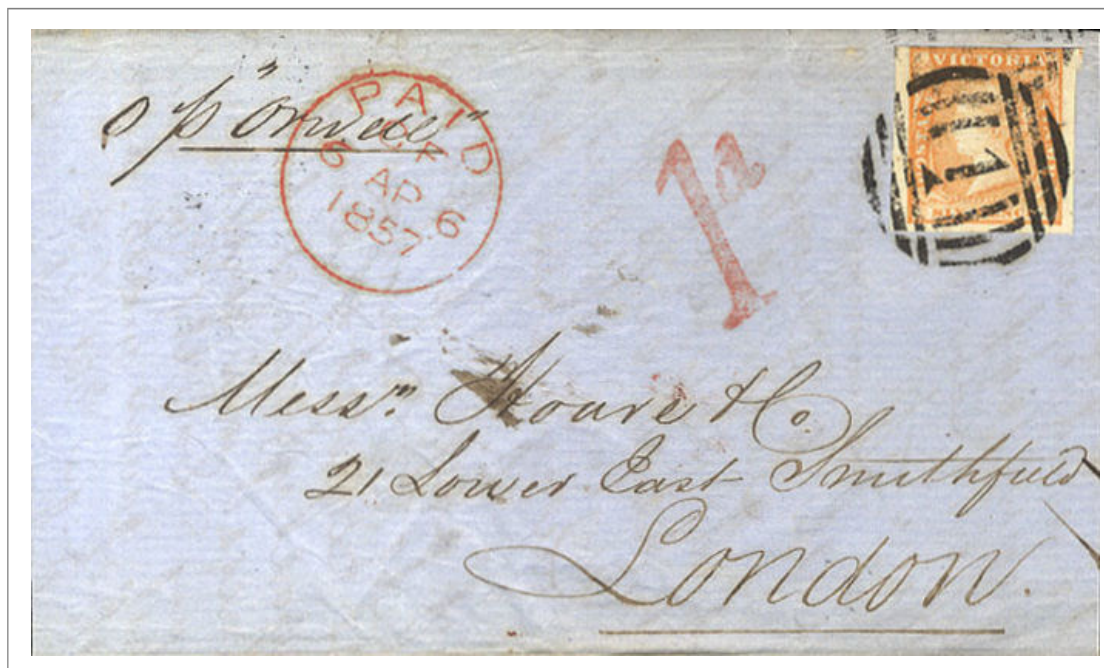 p "Orwell"
PAID
AP 6
1857
1d
VICTORIA
1
Messrs. Hoare & Co.
21 Lower East Smithfield
London.